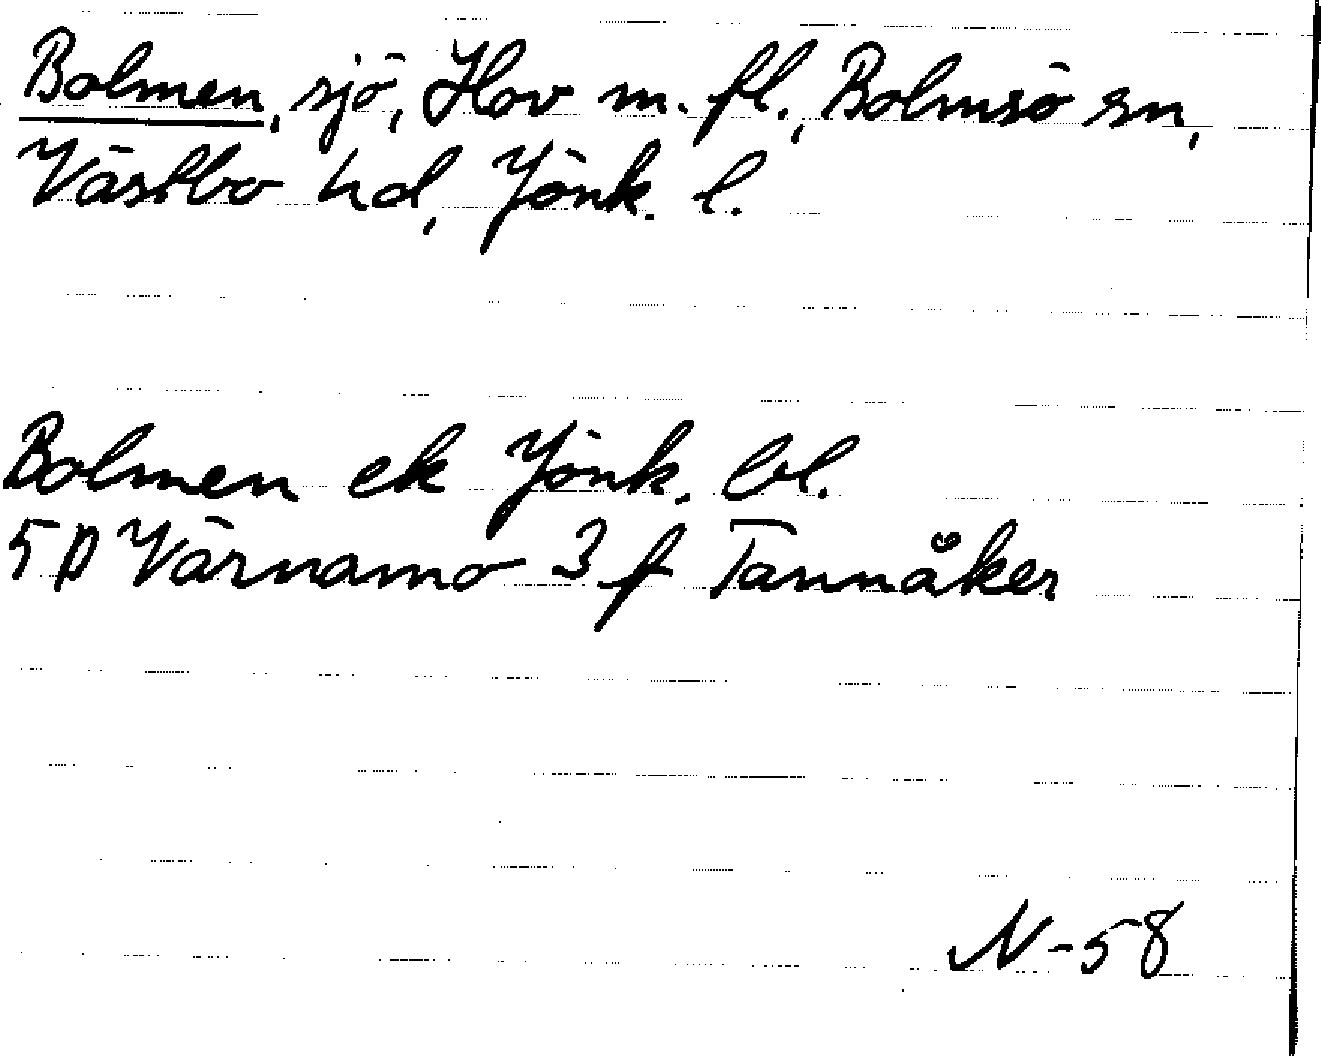 Bolmen, sjö, Hov m. fl., Bolmsö sn,
Västbo hd, Jönk. l.
Bolmen ek Jönk. bl.
5D Värnamo 3 f Tannåker
N-58